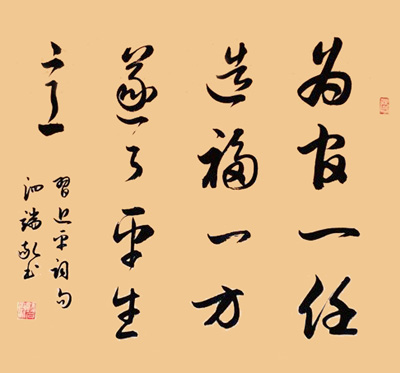 为官一任
造福一方
遂了平生
意
習近平词句
泗端敬书